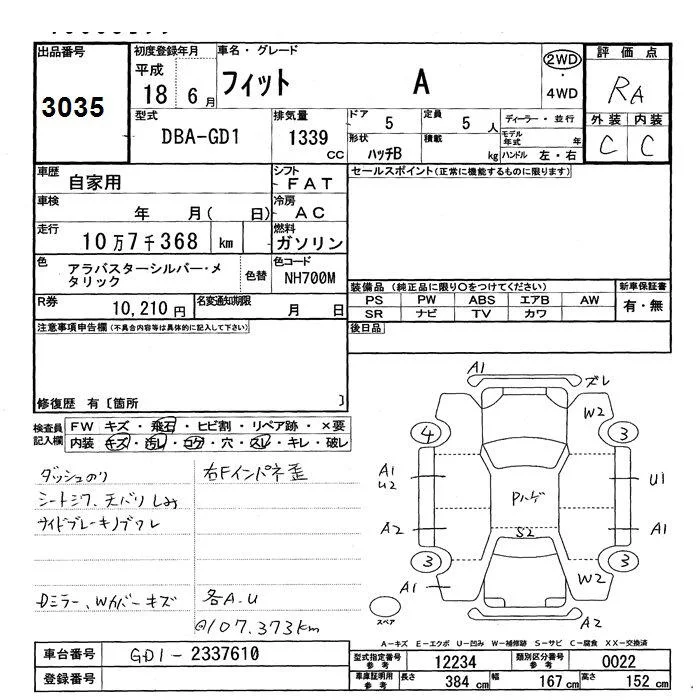 出品番号
3035
初度登録年月
平成
18 6月
車名・グレード
フィット A
2WD
・
4WD
評価点
RA
外装 内装
C C
型式
DBA-GD1
排気量
1339
CC
ドア
5
定員
5 人
形状
ハッチB
積載
kg
ディーラー・並行
モデル年式 年
ハンドル 左・右
車歴
自家用
シフト
FAT
車検
年 月( 日)
冷房
AC
走行
10万7千368 km
燃料
ガソリン
色
アラバスターシルバー・メ
タリック
色替
色コード
NH700M
R券
10,210円
名変通知期限
月 日
セールスポイント(正常に機能するものに限ります)
装備品 (純正品に限り○をつけてください)
PS PW ABS エアB AW
SR ナビ TV カワ
新車保証書
有・無
後日品
注意事項申告欄(不具合内容等は具体的に記入して下さい)
修復歴 有〔箇所 〕
検査員
記入欄
FW キズ・飛石・ヒビ割・リペア跡・×要
内装 キズ・汚レ・コゲ・穴・スレ・キレ・破レ
ダッシュのり
シートシワ、天バリしみ
サイドブレーキノブワレ
Dミラー、Wカバーキズ
右Fインパネ歪
各A.U
@107.373km
A1
ズレ
W2
4
3
A1
U2
U1
Pハゲ
A2
A1
S2
3
3
A1
W2
A2
スペア
A-キズ E-エクボ U-凹み W-補修跡 S-サビ C-腐食 XX-交換済
車台番号
GD1-2337610
登録番号
型式指定番号
参考
12234
類別区分番号
参考
0022
車庫証明用
参考
長さ 384cm
幅 167cm
高さ 152cm